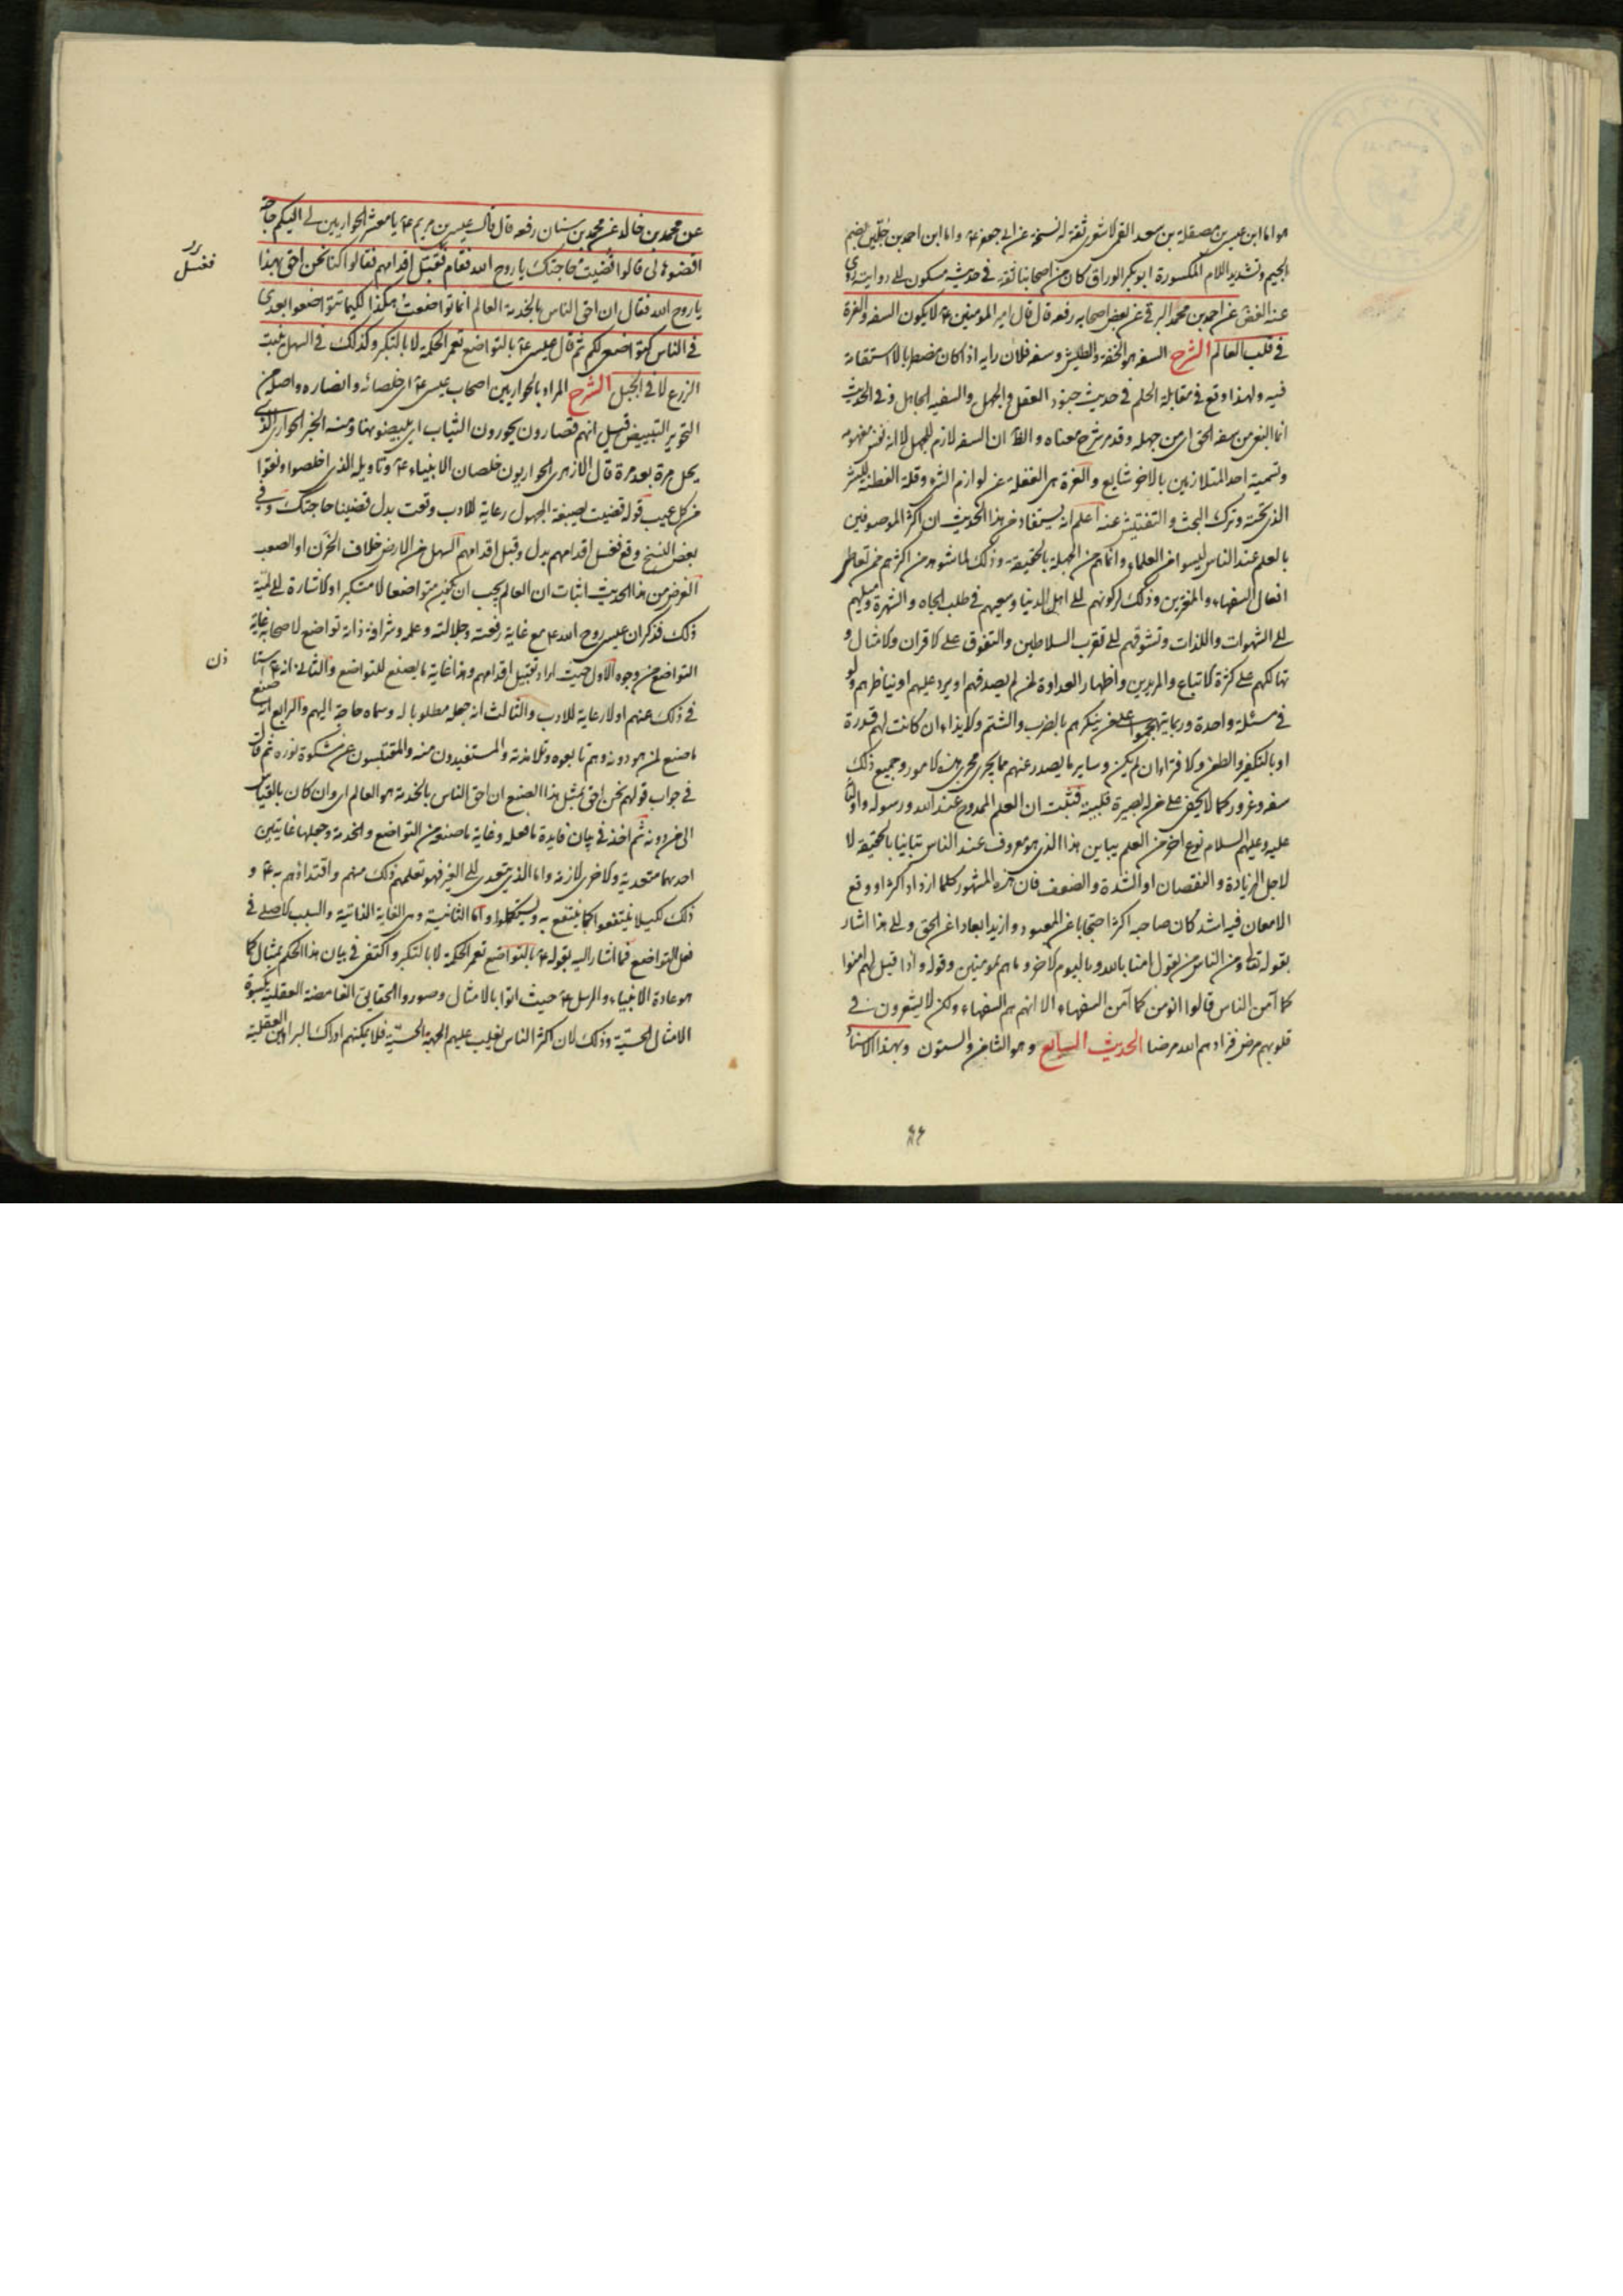 هو اما ابن عيسى بن مصقلة بن سعد القمى الاشعرى ثقة له نسخة عن ابى جعفر ع واما ابن احمد بن جلين بضم
الجيم وتشديد اللام المكسورة ابو بكر الوراق كان من اصحابنا ثقة فى حديثه مسكون الى روايته روى
عنه الغض عن احمد بن محمد البرقى عن بعض اصحابه رفعه قال قال امير المومنين ع لا يكون السفه والغرة
فى قلب العالم الشرح السفه هو الخفة والطيش وسفه فلان رايه اذا كان مضطربا لا استقامة
فيه ولهذا وقع فى مقابلة الحلم فى حديث جنود العقل والجهل والسفيه الجاهل وفى الحديث
انما البغى من سفه الحق اى من جهله وقد مر شرح معناه والظ ان السفه لازم للجهل لا انه نفس مفهومه
وتسمية احد المتلازمين بالاخر شايع والغرة هى الغفلة عن لوازم الشر وقلة الفطنة للشر
الذى تحته وترك البحث والتفتيش عنه اعلم انه يستفاد من هذا الحديث ان اكثر الموصوفين
بالعلم عند الناس ليسوا من العلماء وانما هم من الجهلة بالحقيقة وذلك لما شوهد من اكثرهم من تعاطى
افعال السفهاء والمغترين وذلك لركونهم الى اهل الدنيا وسعيهم فى طلب الجاه والشهرة وميلهم
الى الشهوات واللذات وتشوقهم الى تقرب السلاطين والتفوق على الاقران والامثال و
تهالكهم على كثرة الاتباع والمريدين واظهار العداوة لمن لم يصدقهم او يرد عليهم او يناظرهم ولو
فى مسئلة واحدة وربما يتهجموا على من ينكرهم بالضرب والشتم والايذاء ان كانت لهم قدرة
او بالتكفير والطعن والافتراء ان لم يكن وساير ما يصدر عنهم مما يجرى مجرى هذه الامور وجميع ذلك
سفه وغرور كما لا يخفى على من له بصيرة قلبية فثبت ان العلم الممدوح عند الله ورسوله واوليائه
عليه وعليهم السلام نوع اخر من العلم يباين هذا الذى هو معروف عند الناس تباينا بالحقيقة لا
لاجل الزيادة والنقصان او الشدة والضعف فان هذه المشهور كلما ازداد اكثر او وقع
الامعان فيه اشد كان صاحبه اكثر احتجابا عن المعبود وازيد ابعادا عن الحق والى هذا اشار
بقوله تعالى ومن الناس من يقول امنا بالله وباليوم الاخر وما هم بمومنين وقوله واذا قيل لهم امنوا
كما آمن الناس قالوا انومن كما آمن السفهاء الا انهم هم السفهاء ولكن لا يشعرون فى
قلوبهم مرض فزادهم الله مرضا الحديث السابع وهو الثامن والستون وبهذا الاسناد
٤٤
عن محمد بن خالد عن محمد بن سنان رفعه قال قال عيسى بن مريم ع يا معشر الحواريين لى اليكم حاجة
اقضوها لى قالوا قضيت حاجتك يا روح الله فقام فقبل اقدامهم فقالوا كنا نحن احق بهذا
فغسل
يا روح الله فقال ان احق الناس بالخدمة العالم انما تواضعت هكذا لكيما تتواضعوا بعدى
فى الناس كتواضعى لكم ثم قال عيسى ع بالتواضع تعمر الحكمة لا بالتكبر وكذلك فى السهل ينبت
الزرع لا فى الجبل الشرح المراد بالحواريين اصحاب عيسى ع اى خلصائه وانصاره واصله من
التحوير التبييض قيل انهم قصارون يحورون الثياب اى يبيضونها ومنه الخبز الحوارى الذى
نخل مرة بعد مرة قال الازهرى الحواريون خلصان الانبياء ع وتاويله الذى اخلصوا ونقوا
من كل عيب قوله قضيت بصيغة المجهول رعاية للادب وقعت بدل قضينا حاجتك وفى
بعض النسخ وقع فغسل اقدامهم بدل وقبل اقدامهم السهل من الارض خلاف الحزن او الصعب
الغرض من هذا الحديث اثبات ان العالم يجب ان يكون متواضعا لا متكبرا والاشارة الى لمية
ذلك فذكر ان عيسى روح الله ع مع غاية رفعته وجلالته وعلمه وشرافة ذاته تواضع لاصحابه غاية
التواضع من وجوه الاول حيث اراد تقبيل اقدامهم وهذا غاية ما يصنع للتواضع والثانى انه ع استاذن
فى ذلك عنهم اولا رعاية للادب والثالث انه جعله مطلوبا له وسماه حاجة اليهم والرابع انه صنع
ما صنع لمن هو دونه وهم تابعوه وتلامذته والمستفيدون منه والمقتبسون من مشكوة نوره ثم قال
فى جواب قولهم نحن احق بمثل هذا الصنع ان احق الناس بالخدمة هو العالم اى وان كان بالقياس
الى من دونه ثم اخذ فى بيان فايدة ما فعله وغاية ما صنعه من التواضع والخدمة وجعلها غايتين
احديهما متعدية والاخرى لازمة واما الذى يتعدى الى الغير فهو تعلمهم ذلك منهم واقتداؤهم به ع و
ذلك لكيلا ينتفعوا كما ينتفع به ويستكملوا واما الثانية وهى الغاية الذاتية والسبب الاصلى فى
فعل التواضع فما اشار اليه بقوله ع بالتواضع تعمر الحكمة لا بالتكبر واكتفى فى بيان هذا الحكم بمثال كما
هو عادة الانبياء والرسل ع حيث اتوا بالامثال وصوروا الحقايق الغامضة العقلية بكسوة
الامثال الحسية وذلك لان اكثر الناس يغلب عليهم الجهة الحسية فلا يمكنهم ادراك البراهين العقلية